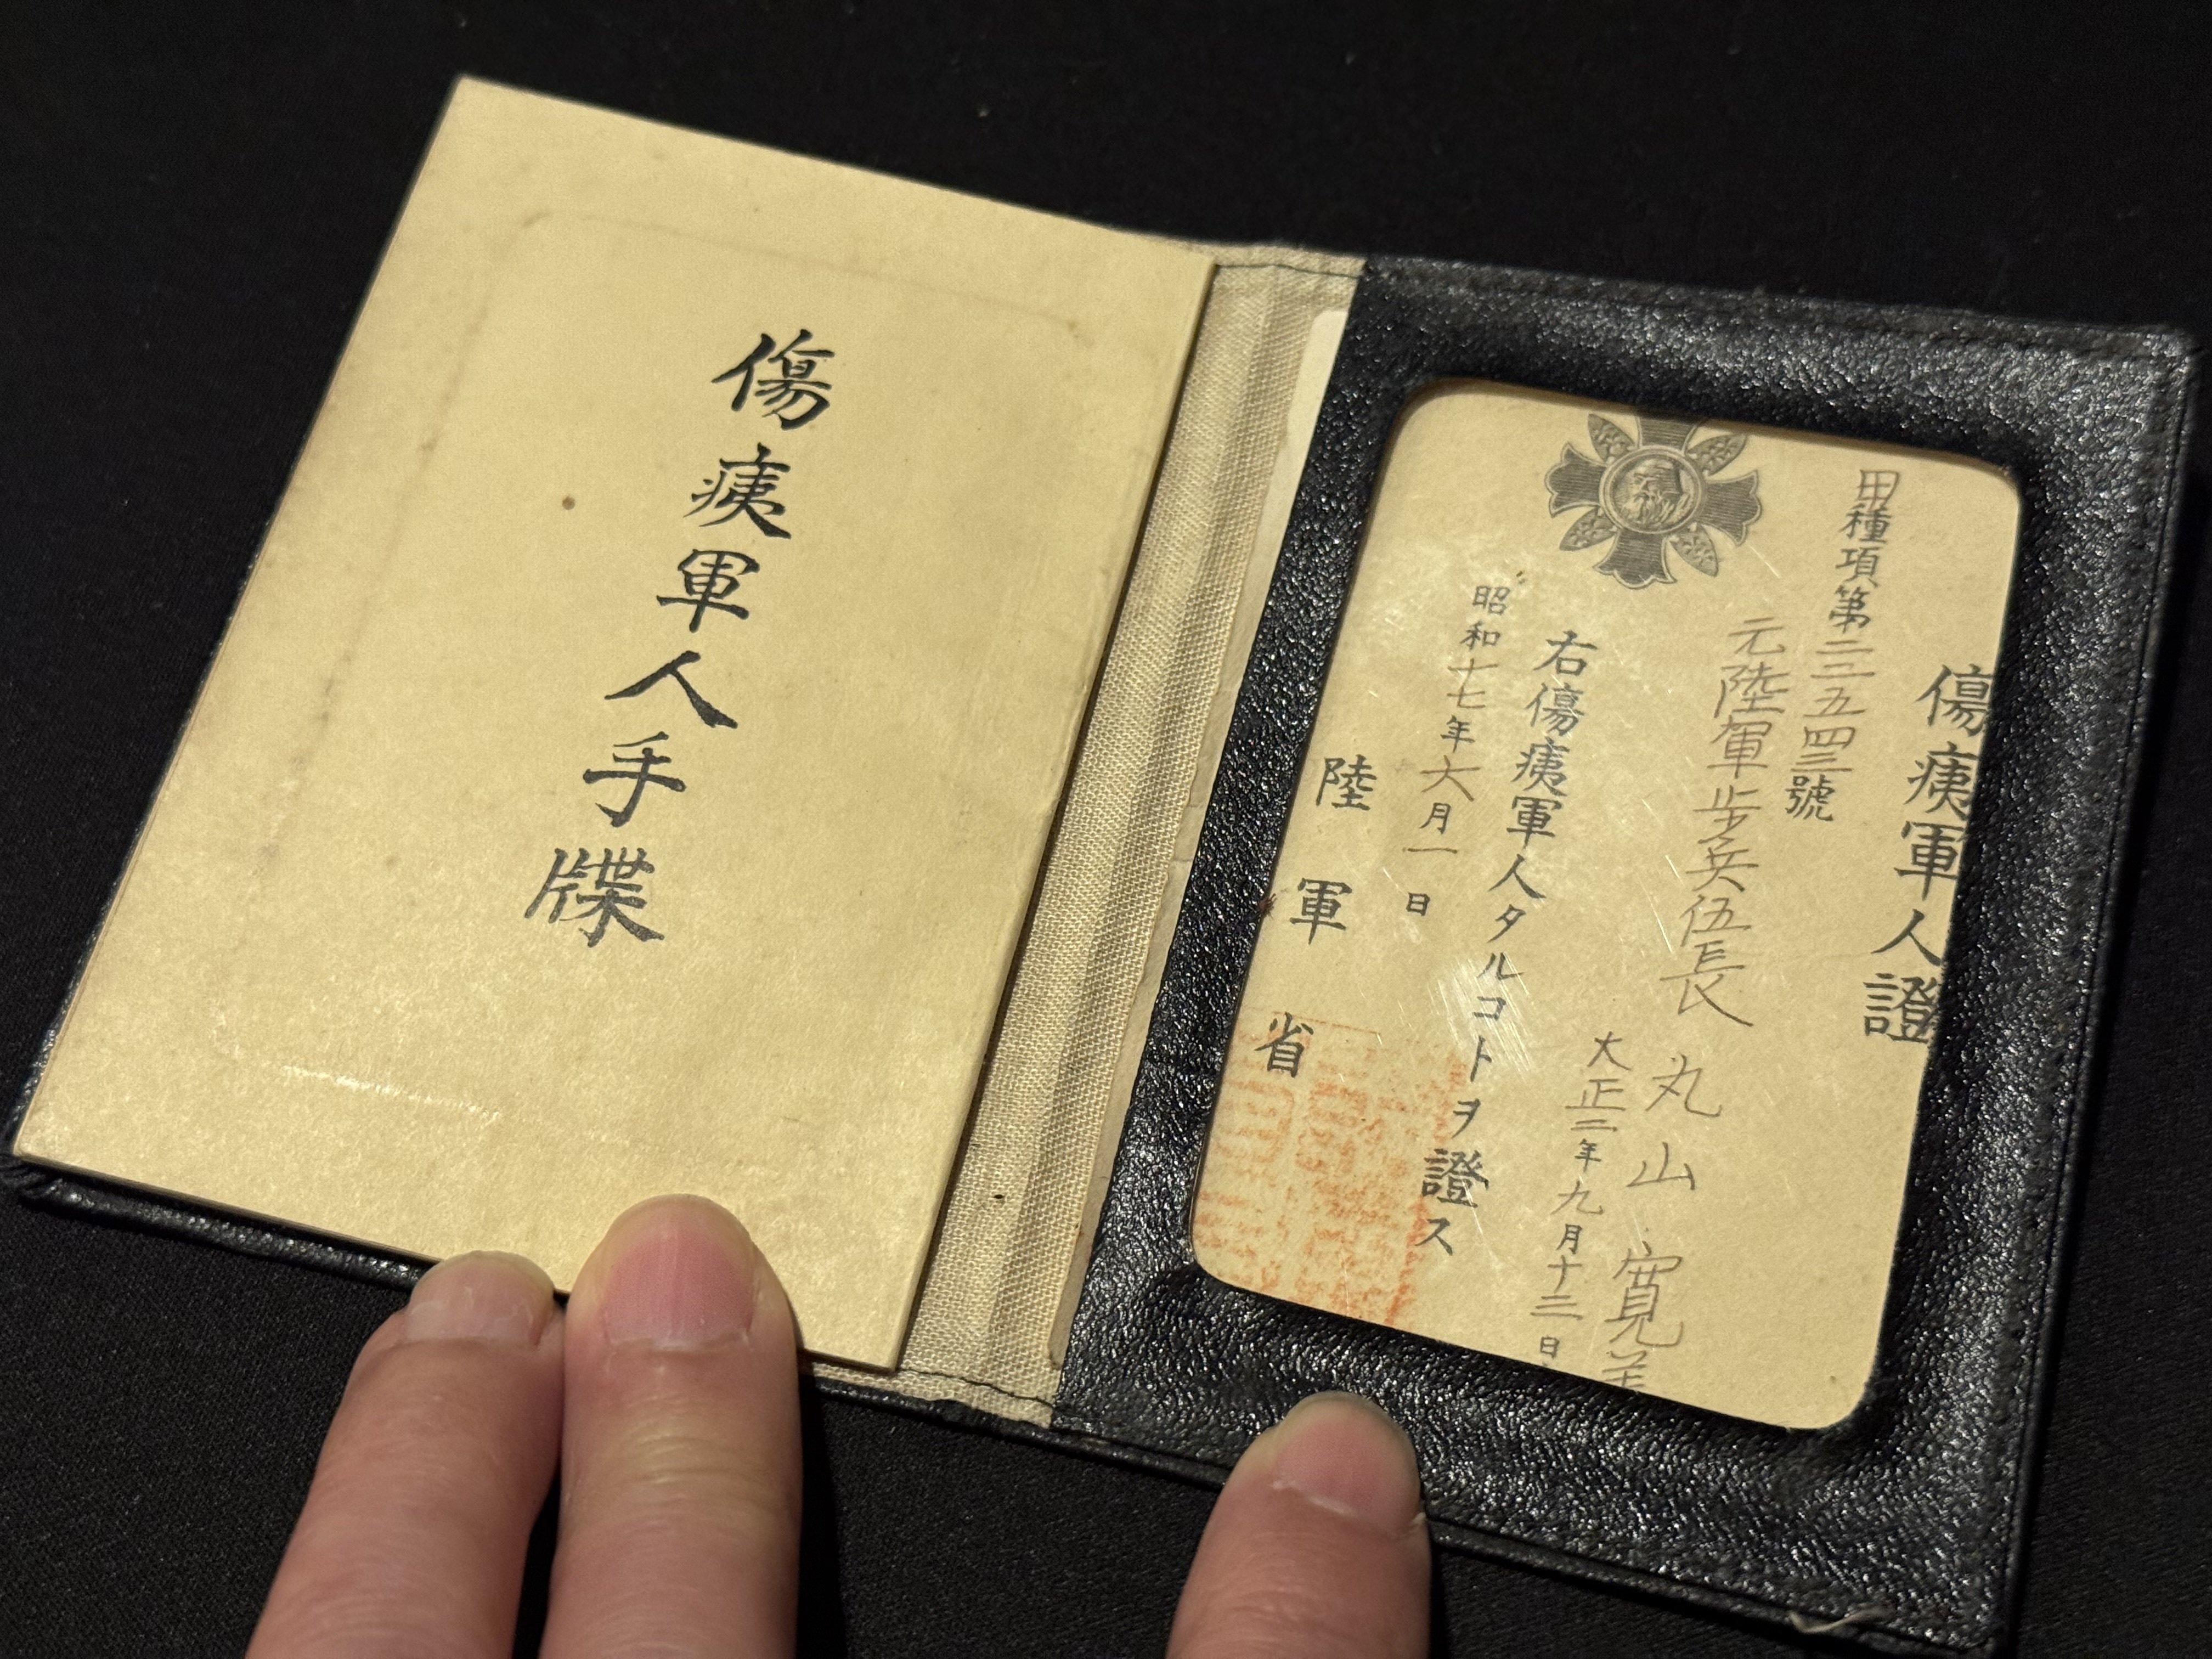 傷痍軍人手牒
傷痍軍人證
甲種項第二三五四三號
元陸軍步兵伍長
丸山寛美
大正二年九月十三日
右傷痍軍人タルコトヲ證ス
昭和十七年六月一日
陸軍省